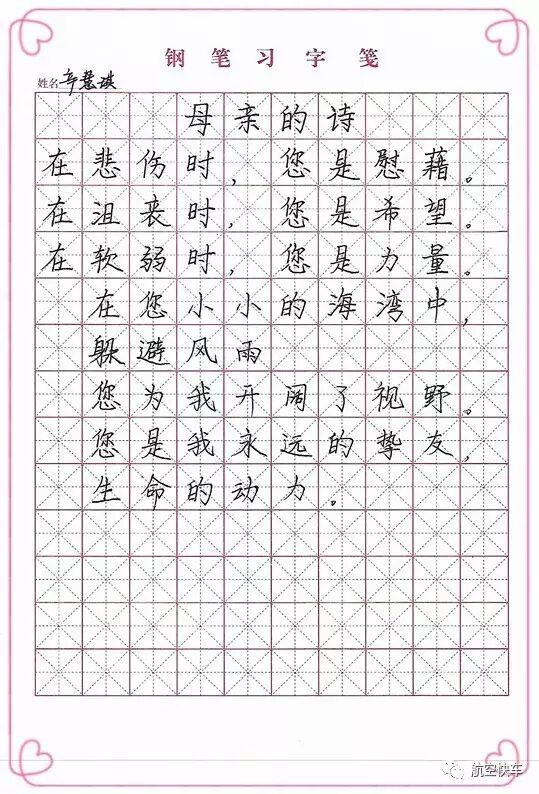 钢笔习字笺
姓名 辛慧琪
母亲的诗
在悲伤时，您是慰藉。
在沮丧时，您是希望。
在软弱时，您是力量。
在您小小的海湾中，
躲避风雨
您为我开阔了视野。
您是我永远的挚友，
生命的动力。
航空快车